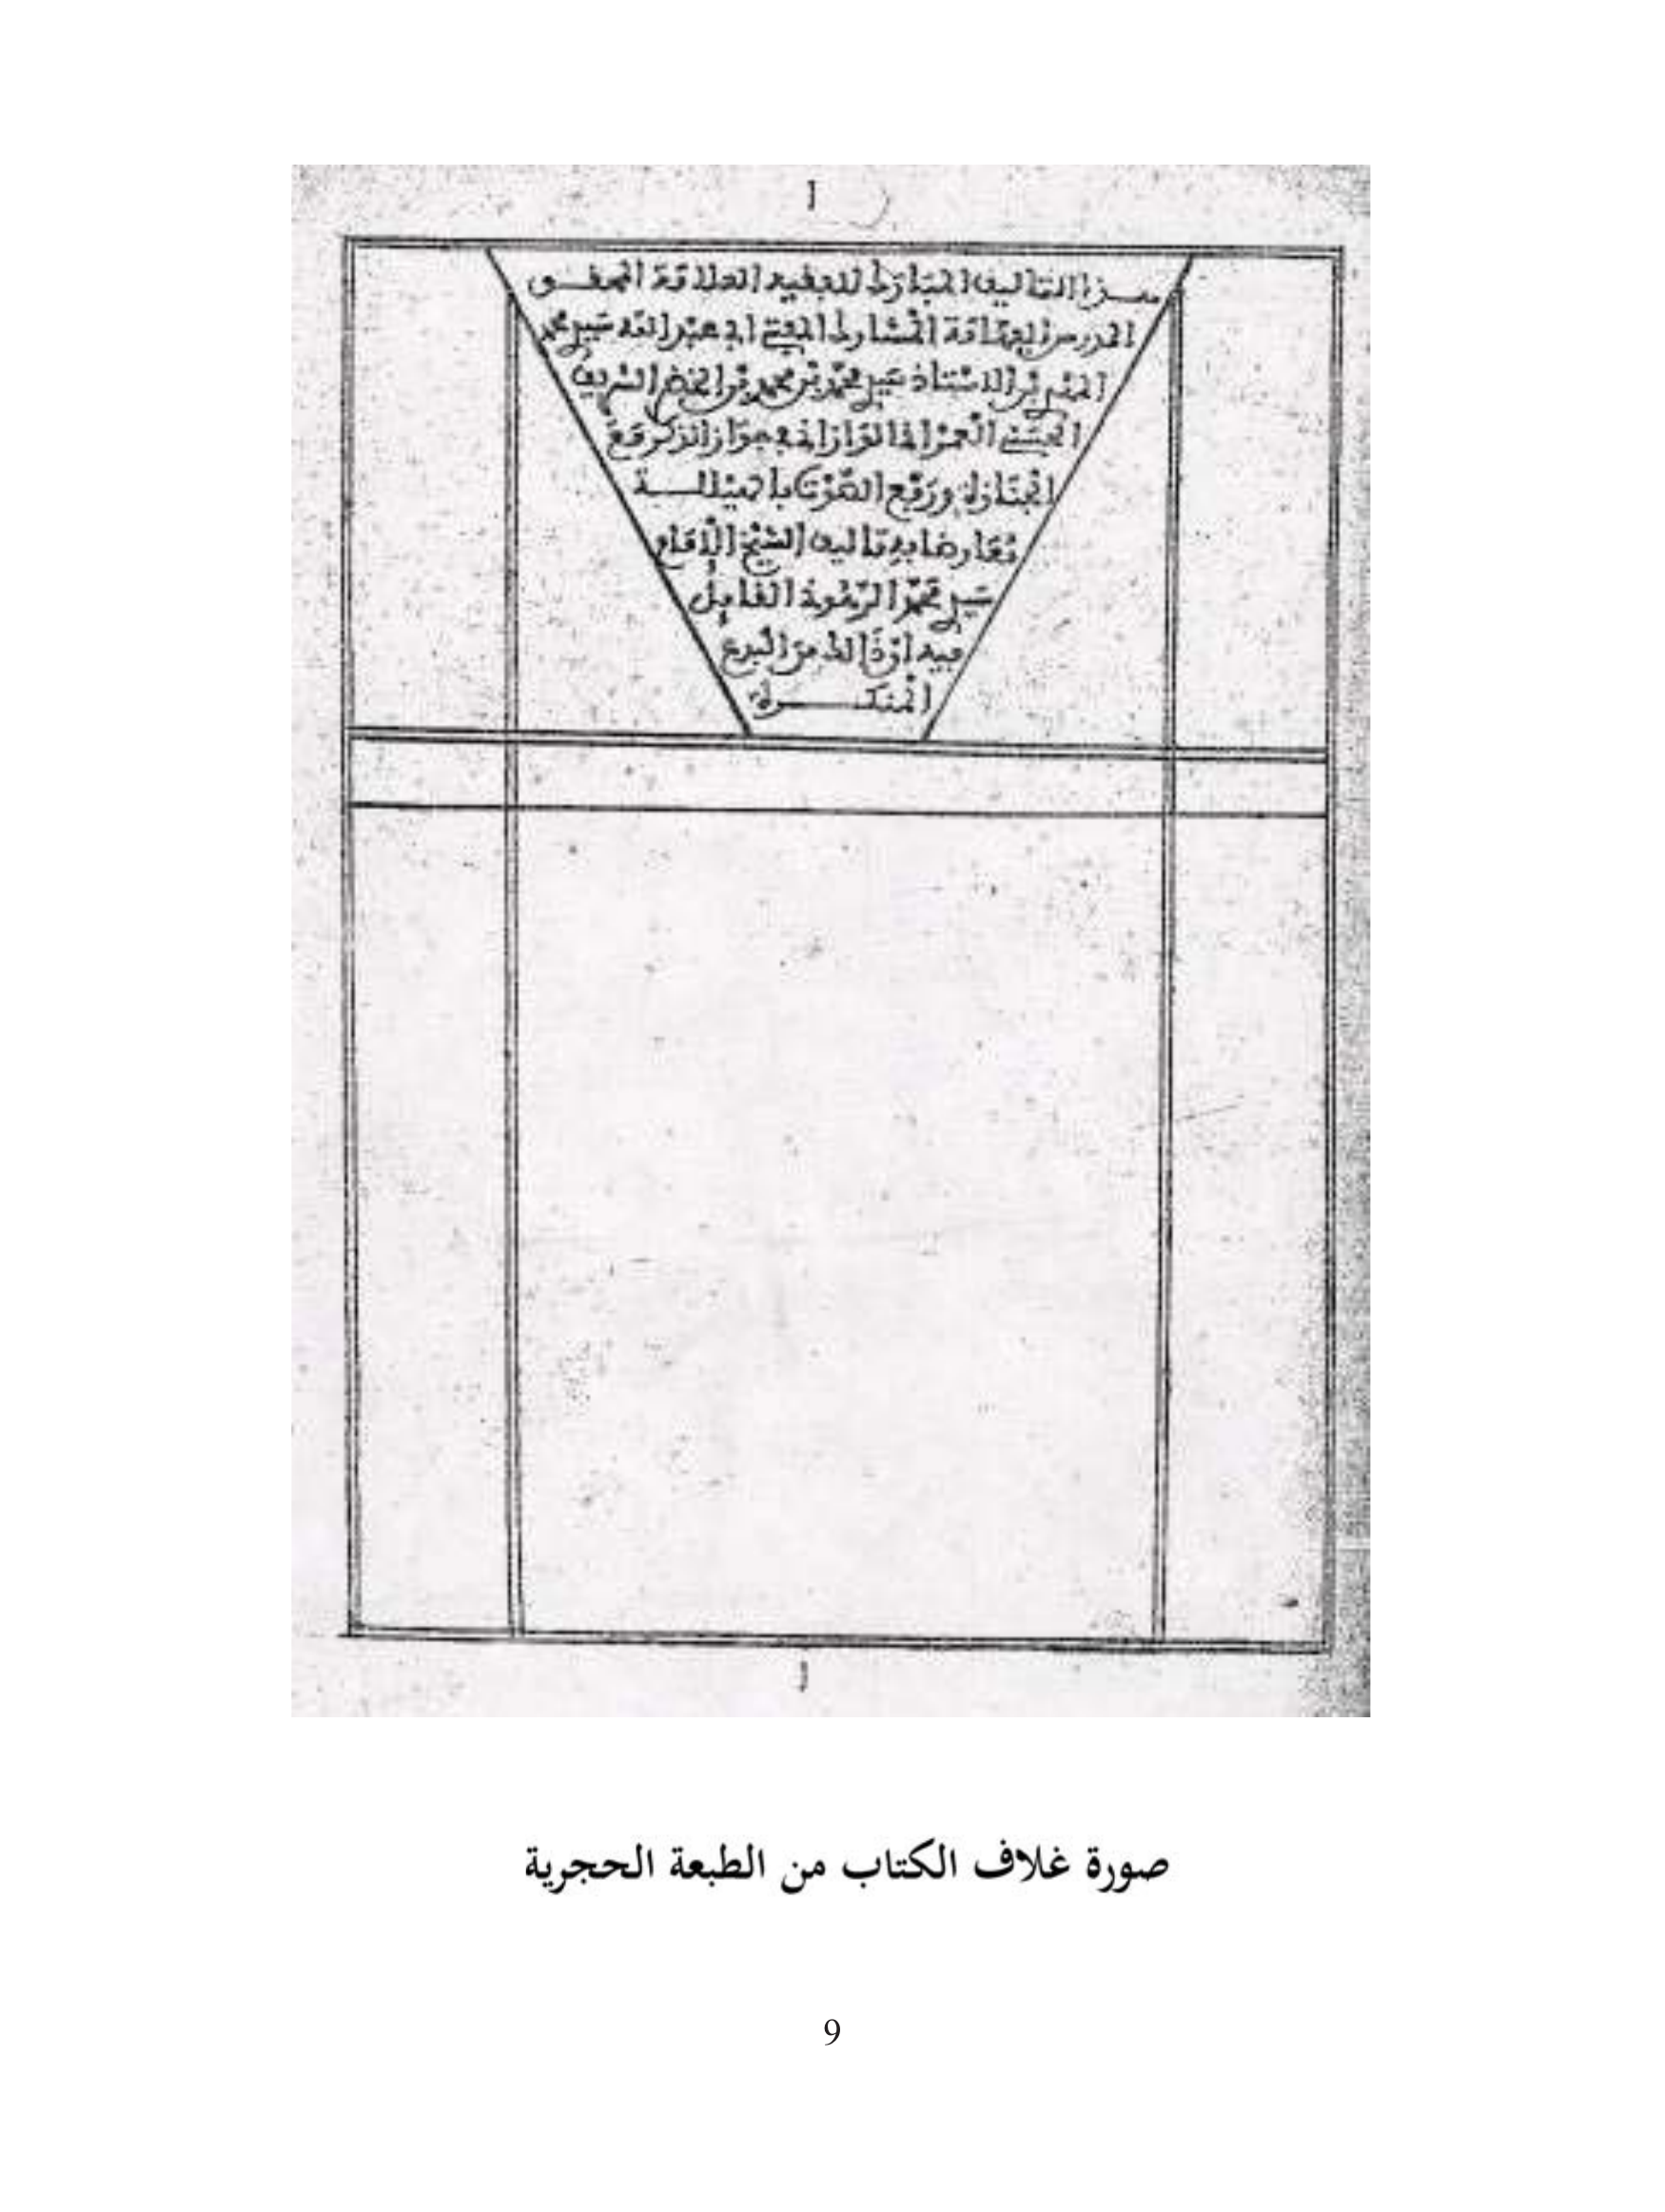 1
هذا التأليف المبارك للفقيه العلامة المحقق
المدرس الفهامة المشارك المفتي أبي عبد الله سيدي محمد
المهدي بن الاستاذ سيدي محمد بن محمد بن الخضر الشريف
الحسني العمراني الوزاني في جواز الذكر مع
الجنازة ورفع الصوت بالهيللة
معارضا به تأليف الشيخ الإمام
سيدي محمد الرهوني القايل
فيه ان ذالك من البدع
المنكرة
1
صورة غلاف الكتاب من الطبعة الحجرية
9